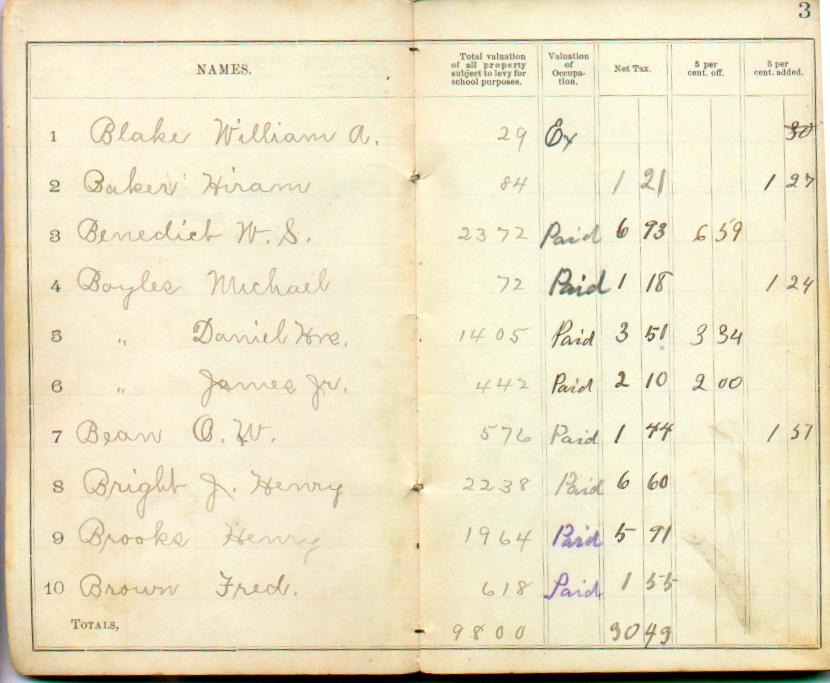 3
NAMES. Total valuation of all property subject to levy for school purposes. Valuation of Occupa- tion. Net Tax. 5 per cent. off. 5 per cent. added.
1 Blake William A. 29 Ex 30
2 Baker Hiram 84 1 21 1 27
3 Benedict W. S. 2372 Paid 6 93 6 59
4 Boyles Michael 72 Paid 1 18 1 24
5 " Daniel Hrs. 1405 Paid 3 51 3 34
6 " James Jr. 442 Paid 2 10 2 00
7 Bean O. W. 576 Paid 1 44 1 51
8 Bright J. Henry 2238 Paid 6 60
9 Brooks Henry 1964 Paid 5 91
10 Brown Fred. 618 Paid 1 55
TOTALS, 9800 30 43